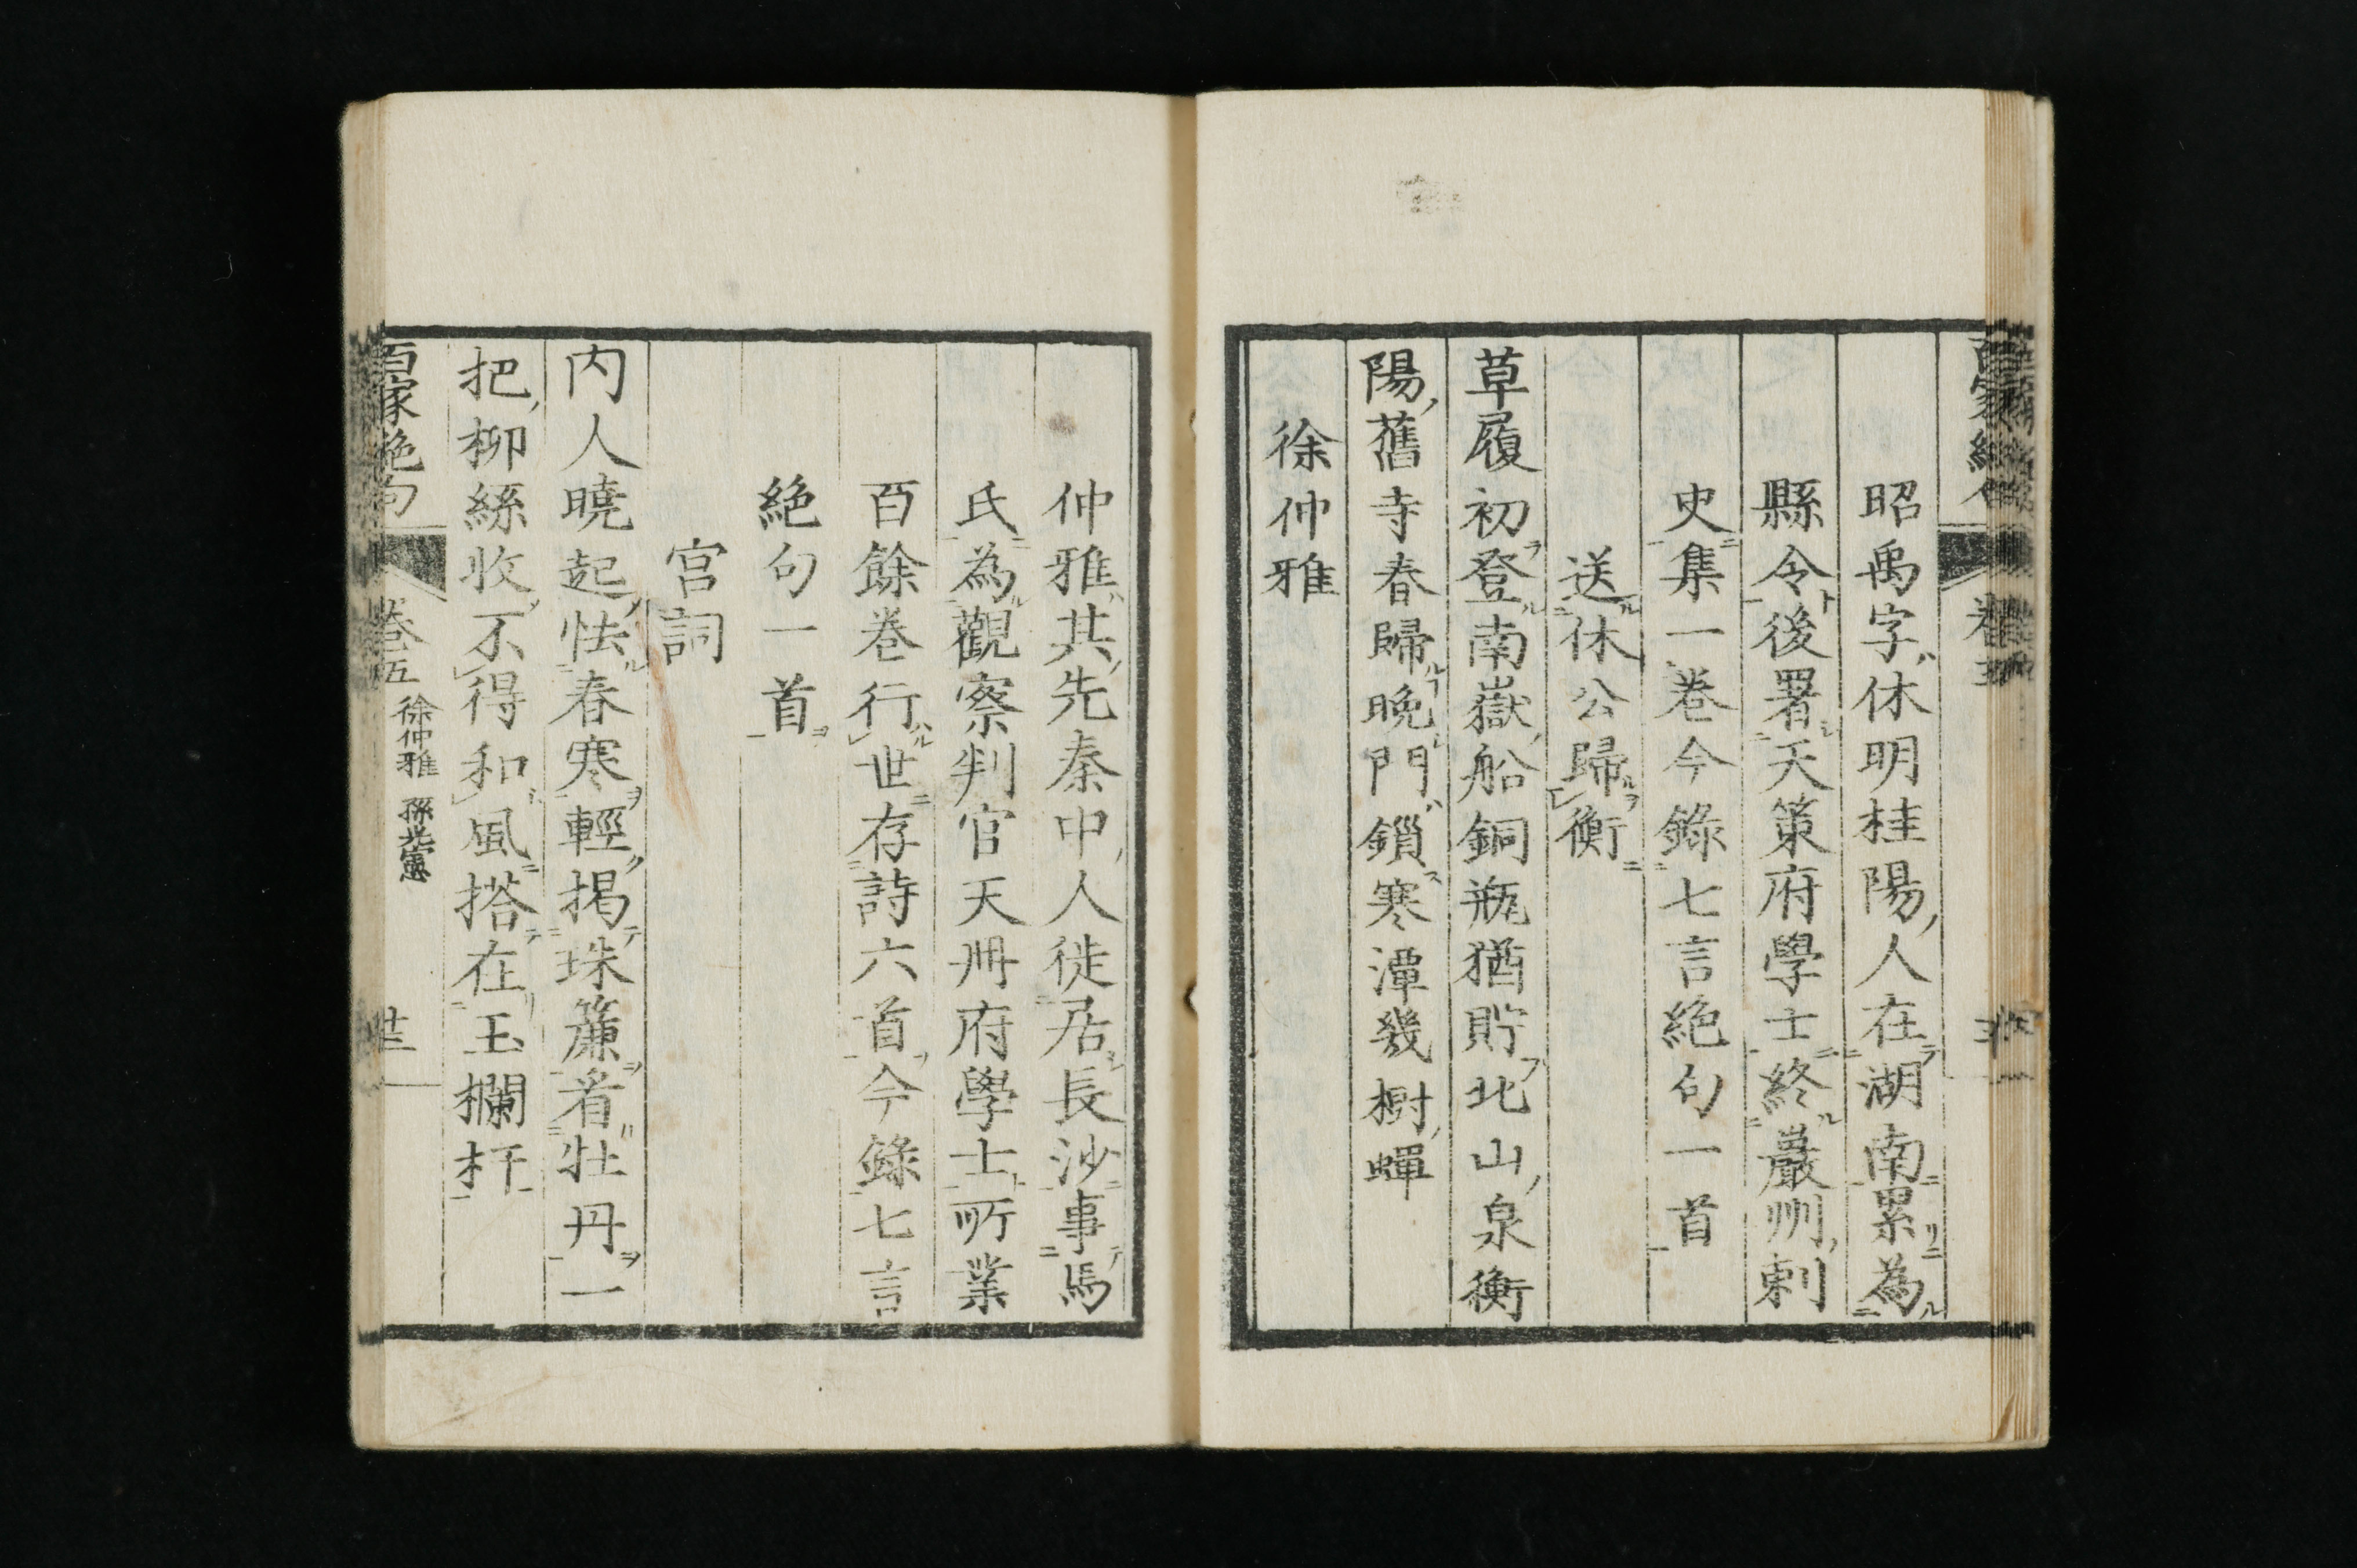 昭禹字休明桂陽人在湖南累為
縣令後署天策府學士終巖州刺
史集一巻今錄七言絶句一首
送休公歸衡
草履初登南嶽船銅瓶猶貯北山泉衡
陽舊寺春歸晩門鎖寒潭幾樹蟬
徐仲雅
仲雅其先秦中人徙居長沙事馬
氏為觀察判官天冊府學士所業
百餘巻行世存詩六首今錄七言
絶句一首
宮詞
内人曉起怯春寒輕掲珠簾看牡丹一
把柳絲收不得和風搭在玉欄杆
百家絶句
巻五 徐仲雅 孫光憲